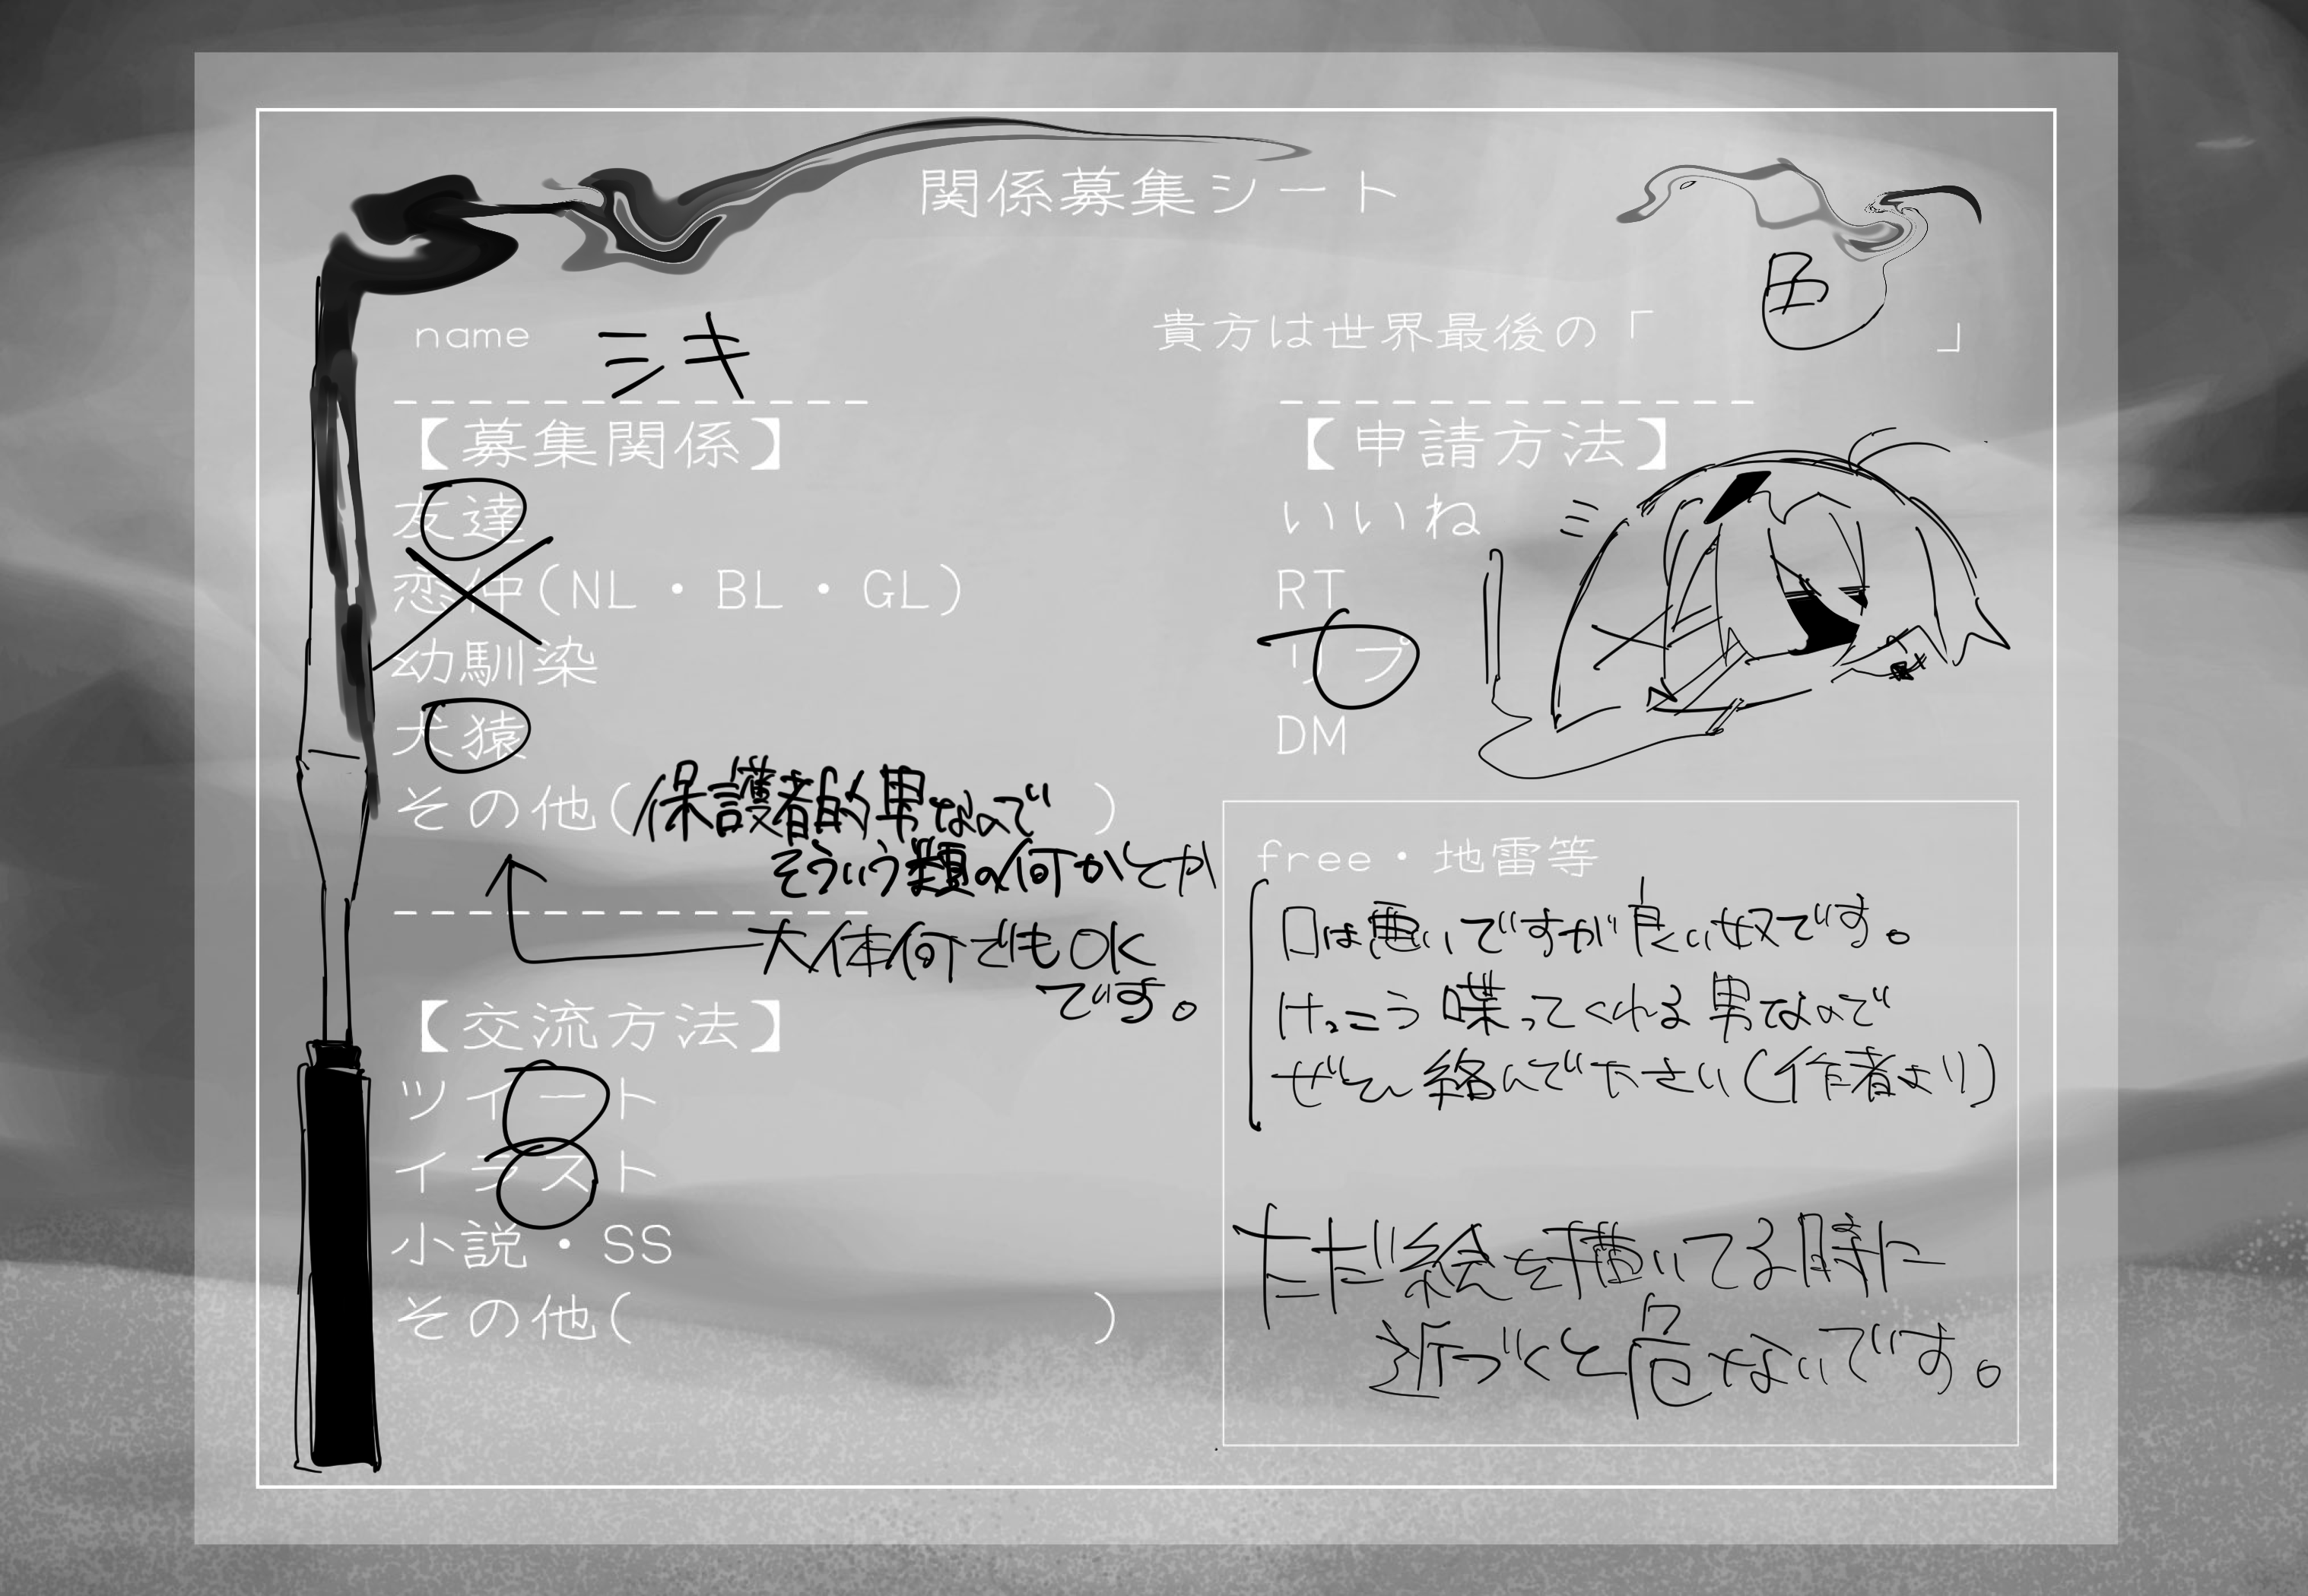 関係募集シート
name シキ
貴方は世界最後の「色」
【募集関係】
友達
恋仲(NL・BL・GL)
幼馴染
犬猿
その他(保護者的男なので)
そういう類の何かとか
大体何でもOK
です。
【申請方法】
いいね
RT
リプ
DM
【交流方法】
ツイート
イラスト
小説・SS
その他( )
free・地雷等
口は悪いですが良い奴です。
けっこう喋ってくれる男なので
ぜひ絡んで下さい(作者より)
ただ絵を描いてる時に
近づくと危ないです。